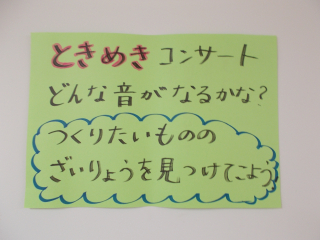 ときめきコンサート
どんな音がなるかな?
つくりたいものの
ざいりょうを見つけてこよう